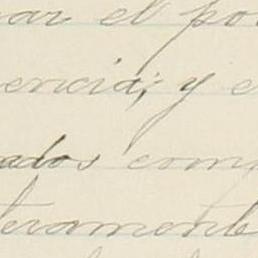 ar el po
encia; y e
ados comp
teramente